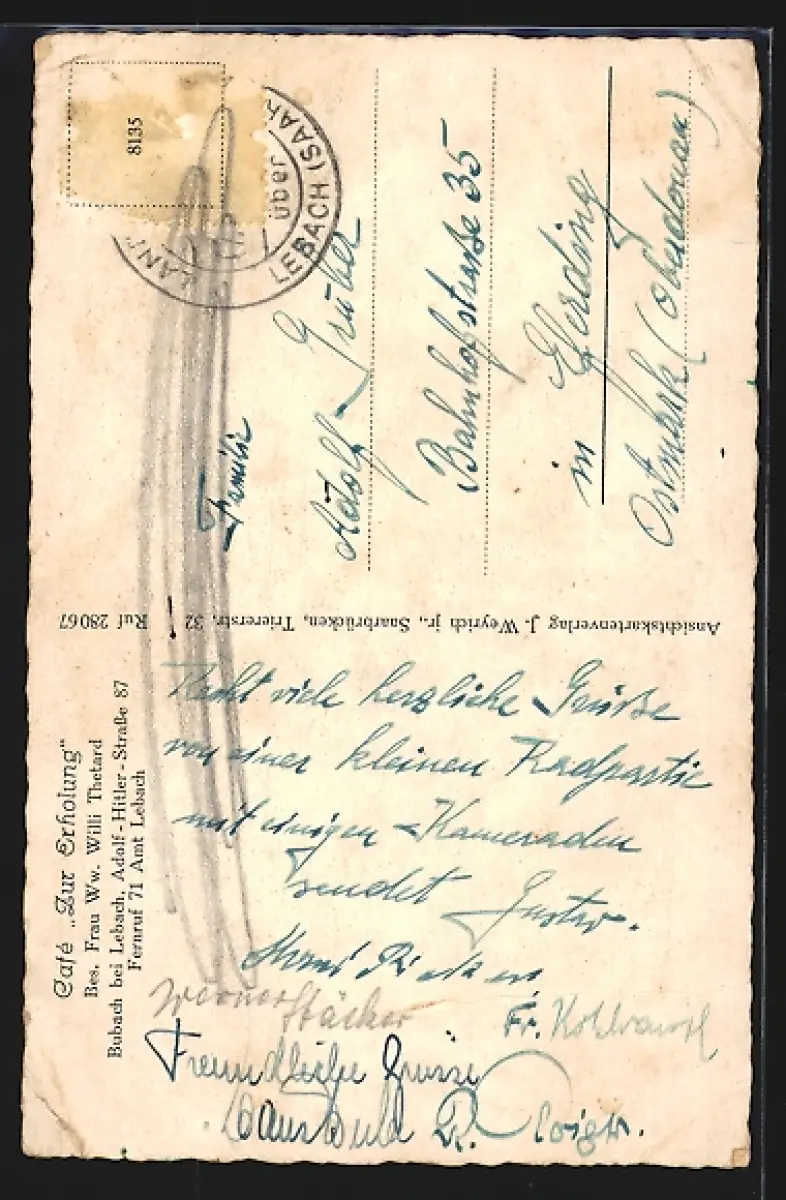 Café „Zur Erholung"
Bes. Frau Ww. Willi Thetard
Bubach bei Lebach, Adolf-Hitler-Straße 87
Fernruf 71 Amt Lebach
8135
über
LEBACH (SAAR
Familie
Adolf Gruber
Bahnhofstraße 35
in Eferding
Ostmark (Oberdonau)
Ansichtskartenverlag J. Weyrich jr., Saarbrücken, Triererstr. 32 Ruf 28067
Recht viele herzliche Grüße
von einer kleinen Radpartie
mit einigen Kameraden
sendet Gustav.
Werner Stäcker
Fr.
Freundliche Grüsse
R. Voigt.